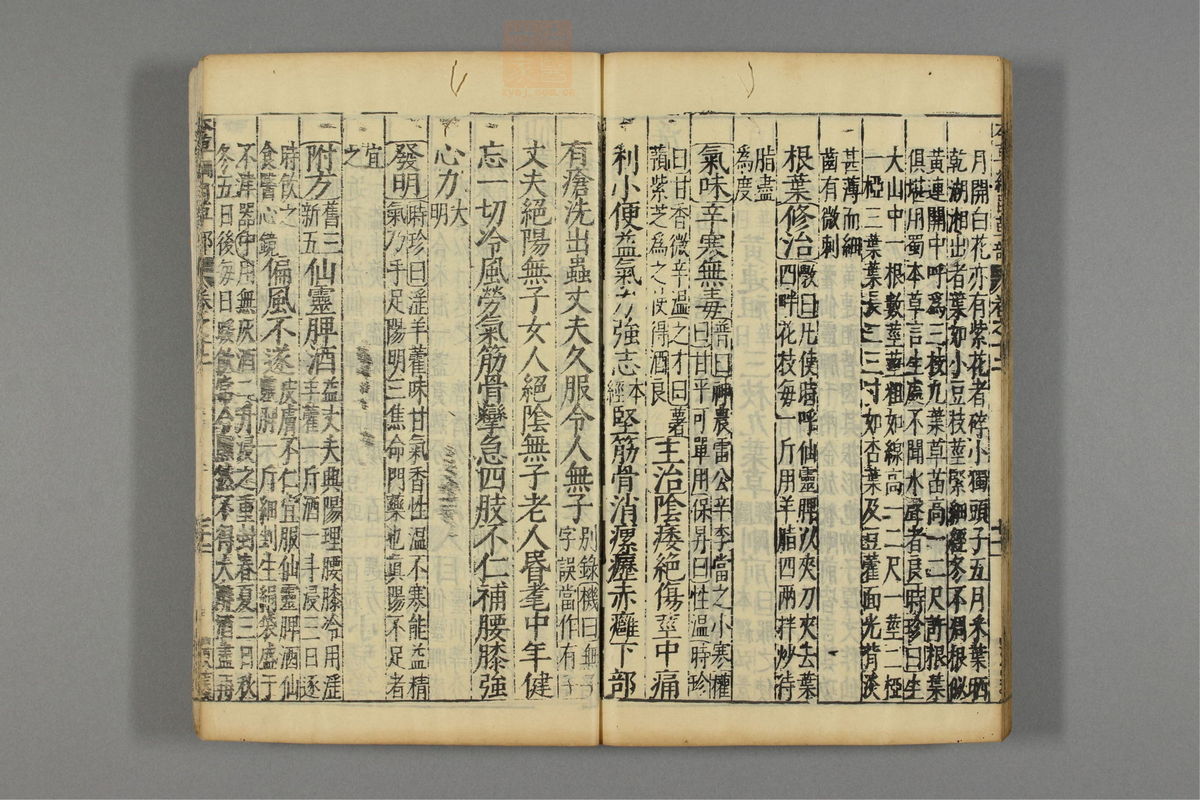 月開白花亦有紫花者碎小獨頭子五月采葉晒
乾湖湘出者葉如小豆枝莖緊細經冬不凋根似
黃連關中呼爲三枝九葉草苗高一二尺許根葉
俱堪用蜀本草言生處不聞水聲者良時珍曰生
大山中一根數莖莖粗如線高一二尺一莖二椏
一椏三葉葉長二三寸如杏葉及豆藿面光背淡
甚薄而細
齒有微刺
根葉修治斅曰凡使時呼仙靈脾夾刀夾去葉
四畔花枝每一斤用羊脂四兩拌炒待
脂盡
爲度
氣味辛寒無毒普曰神農雷公辛李當之小寒權
曰甘平可單用保昇曰性溫時珍
曰甘香微辛溫之才曰薯
蕷紫芝爲之使得酒良主治陰痿絕傷莖中痛
利小便益氣力強志本經堅筋骨消瘰癧赤癰下部
有瘡洗出蟲丈夫久服令人無子別錄機曰無子
字誤當作有子
丈夫絕陽無子女人絕陰無子老人昏耄中年健
忘一切冷風勞氣筋骨攣急四肢不仁補腰膝強
心力大明
發明時珍曰淫羊藿味甘氣香性溫不寒能益精
氣乃手足陽明三焦命門藥也真陽不足者
宜之
附方舊三新五仙靈脾酒益丈夫興陽理腰膝冷用淫
羊藿一斤酒一斗浸三日逐
時飲之食醫心鏡偏風不遂皮膚不仁宜服仙靈脾酒仙
靈脾一斤細剉生絹袋盛于
不津器中用無灰酒二斗浸之重封春夏三日秋
冬五日後每日暖飲常令醺然不得大醉酒盡再